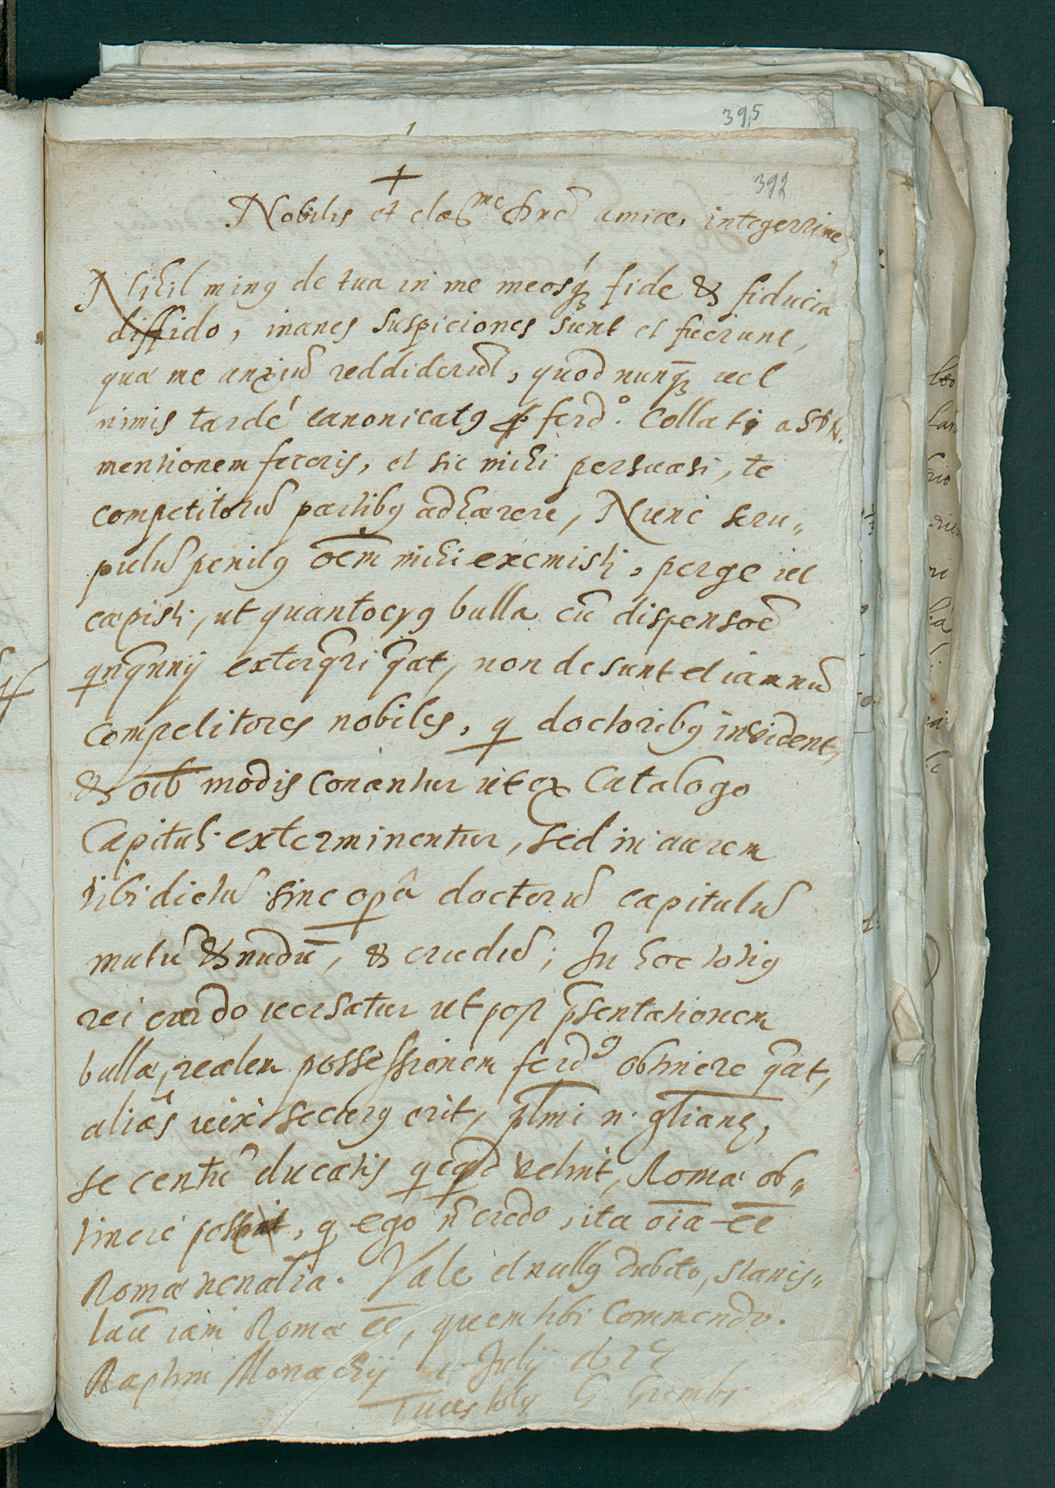 395
392
Nobilis et clarme dne amice integerrime
Nihil minus de tua in me meosq fide & fiducia
diffido, inanes suspiciones sunt et fuerunt,
quae me anxiu reddiderut, quod nunq vel
nimis tardè canonicatus ferdo. collati a Stis.
mentionem feceris, et sic mihi persuasi, te
competitoru partibus adhaerere, Nunc scru-
pulu penitus oem mihi exemisti, perge ut
caepisti, ut quantocyus bulla cu dispensoe
exterqri qat, non desunt etiamnu
competitores nobiles, q doctoribus invident,
& oib modis conantur ut ex Catalogo
Capituli exterminentur, sed in aurem
tibi dictu sine opa doctoru capitulu
mutu & nudu, & crudu; In hoc totius
rei cardo versatur ut post psentationem
bullae, realem possessionem ferdo obtinere qat,
aliàs vix securus erit,
se centu ducatis qcqd velint, Romae ob-
tinere, q ego n credo, ita oia ee
Romae venalia. Vale et nullus dubito, Stanis-
lau iam Romae ee, quem tibi commendo.
Raptim Monachij Julij
Tuus totus G